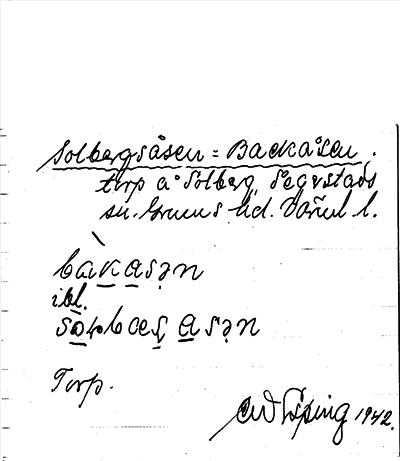 Solbergsåsen = Backåsen,
torp å Solberg, Segerstads
sn. Grums hd. Värml l.
bàkasən
ibl.
soɽbæɽ asən
Torp.
1942.